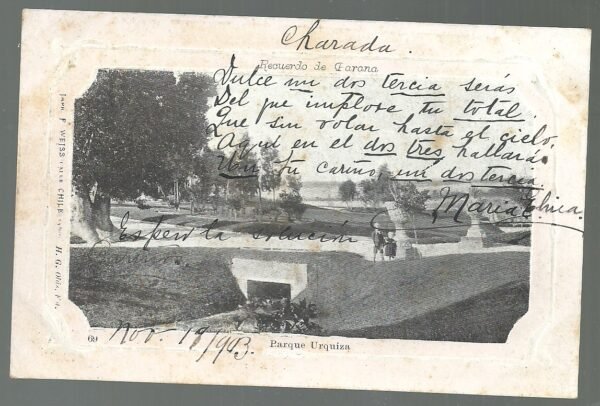 Charada.
Recuerdo de Parana
Dulce mi dos tercia serás
Del que implore tu total.
Que sin volar hasta el cielo,
Aquí en el dos tres hallarás
Un tu cariño, mi dos tercia
Maria Elvira
Espero la solución
Nov. 19/903.
69
Parque Urquiza
F. WEISS
CHILE
H. G.